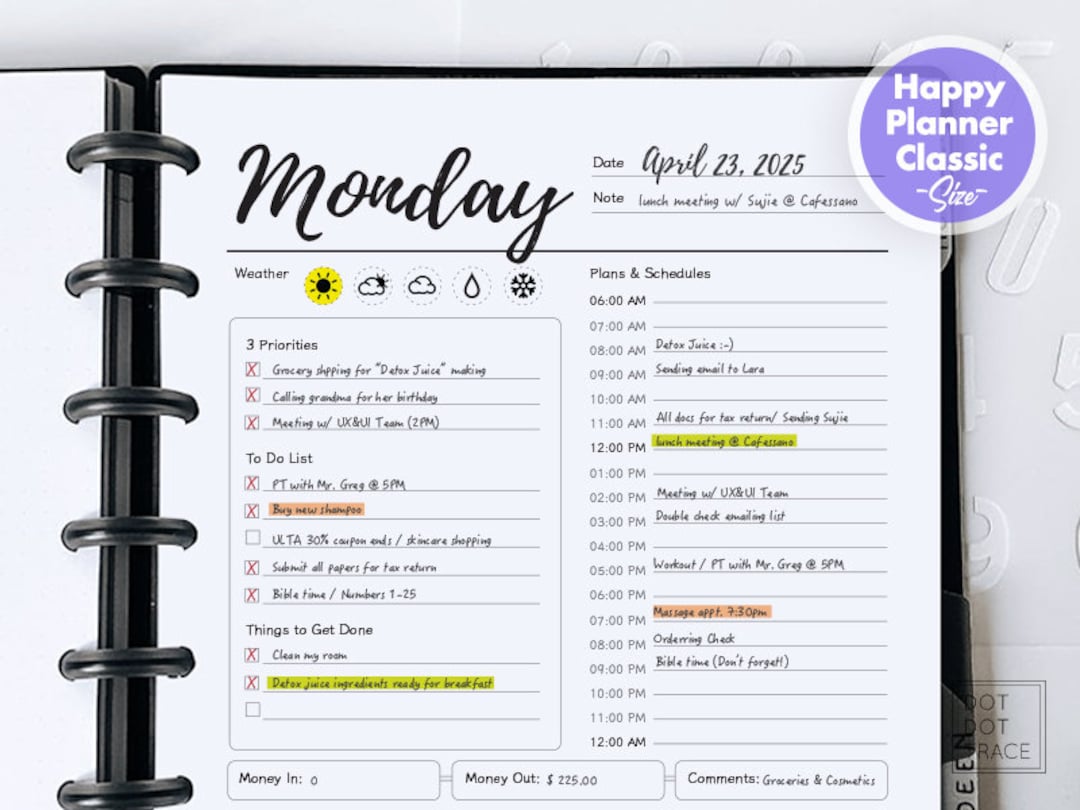 Happy
Planner
Classic
-Size-
Monday
Date April 23, 2025
Note lunch meeting w/ Sujie @ Cafessano
Weather
3 Priorities
X Grocery shpping for "Detox Juice" making
X Calling grandma for her birthday
X Meeting w/ UX&UI Team (2PM)
To Do List
X PT with Mr. Greg @ 5PM
X Buy new shampoo
ULTA 30% coupon ends / skincare shopping
X Submit all papers for tax return
X Bible time / Numbers 1-25
Things to Get Done
X Clean my room
X Detox juice ingredients ready for breakfast
Plans & Schedules
06:00 AM
07:00 AM
08:00 AM Detox Juice :-)
09:00 AM Sending email to Lara
10:00 AM
11:00 AM All docs for tax return/ Sending Sujie
12:00 PM lunch meeting @ Cafessano
01:00 PM
02:00 PM Meeting w/ UX&UI Team
03:00 PM Double check emailing list
04:00 PM
05:00 PM Workout / PT with Mr. Greg @ 5PM
06:00 PM
07:00 PM Massage appt. 7:30pm
08:00 PM Orderring Check
09:00 PM Bible time (Don't forget!)
10:00 PM
11:00 PM
12:00 AM
Money In: 0
Money Out: $ 225.00
Comments: Groceries & Cosmetics
DOT
DOT
GRACE